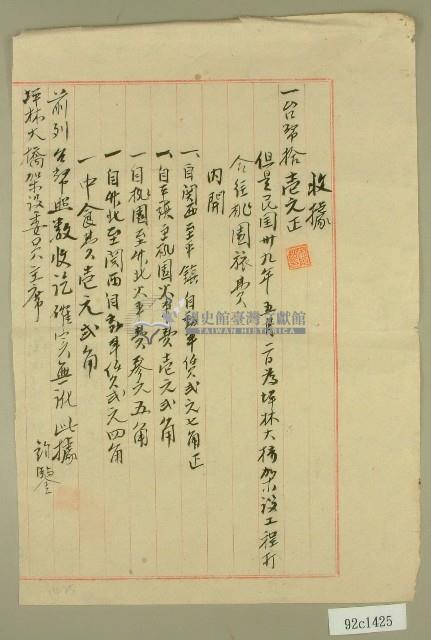 收據
一台幣拾壹元正
但是民国卅九年五月二日為坪林大橋架設工程打
合往桃園旅費
內開
一、自関西至平鎮自動車賃弍元七角正
一、自平鎮至桃園火車費壹元弍角
一、自桃園至竹北火車費參元五角
一、自竹北至関西自動車賃弍元四角
一、中食費壹元弍角
前列台幣照數收訖確實無訛此據
坪林大橋架設委員会主席 鈞鑒
國史館臺灣文獻館
TAIWAN HISTORICA
92c1425